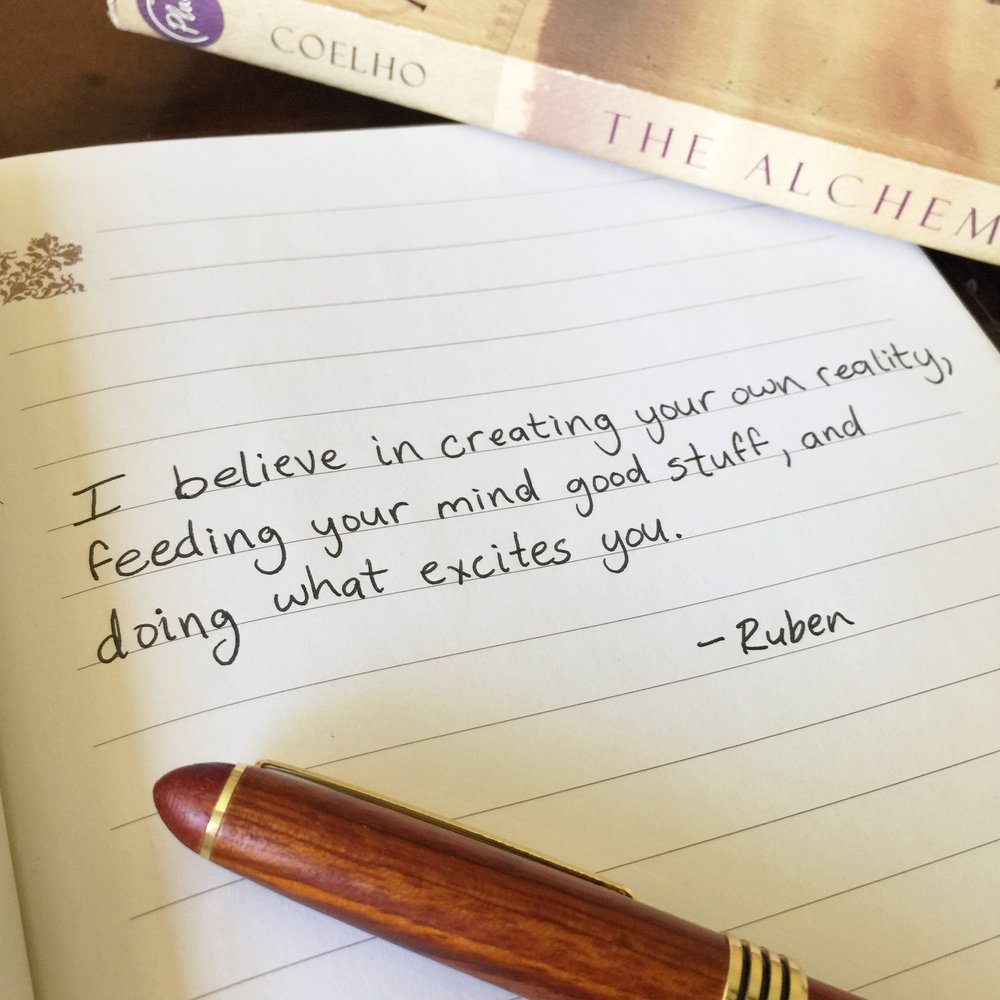 COELHO
THE ALCHEM
I believe in creating your own reality,
feeding your mind good stuff, and
doing what excites you.
– Ruben